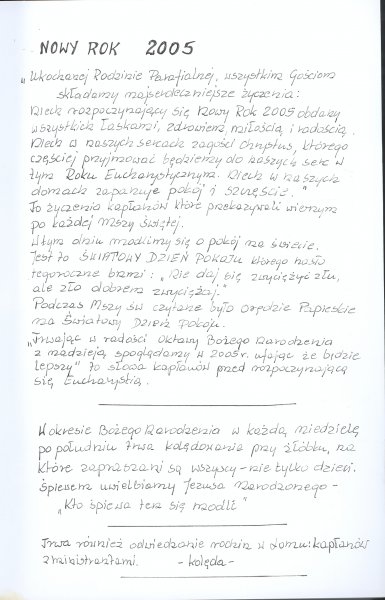 NOWY ROK 2005
"Ukochanej Rodzinie Parafialnej, wszystkim Gościom
składamy najserdeczniejsze życzenia:
Niech rozpoczynający się Nowy Rok 2005 obdarzy
wszystkich Łaskami, zdrowiem, miłością i radością.
Niech w naszych sercach zagości Chrystus, którego
częściej przyjmować będziemy do naszych serc w
tym Roku Eucharystycznym. Niech w naszych
domach zapanuje pokój i szczęście."
To życzenia kapłanów które przekazywali wiernym
po każdej Mszy Świętej.
W tym dniu modlimy się o pokój na świecie.
Jest to ŚWIATOWY DZIEŃ POKOJU którego hasło
tegoroczne brzmi: "Nie daj się zwyciężyć złu,
ale zło dobrem zwyciężaj."
Podczas Mszy św czytane było orędzie Papieskie
na Światowy Dzień Pokoju.
"Trwając w radości Oktawy Bożego Narodzenia
z nadzieją spoglądamy w 2005r. ufając że będzie
lepszy" to słowa kapłanów przed rozpoczynającą
się Eucharystią.
W okresie Bożego Narodzenia w każdą niedzielę
po południu trwa kolędowanie przy żłóbku, na
które zapraszani są wszyscy - nie tylko dzieci.
Śpiewem uwielbiamy Jezusa Narodzonego -
"Kto śpiewa ten się modli"
Trwa również odwiedzanie rodzin w domu: kapłanów
z ministrantami. - kolęda -